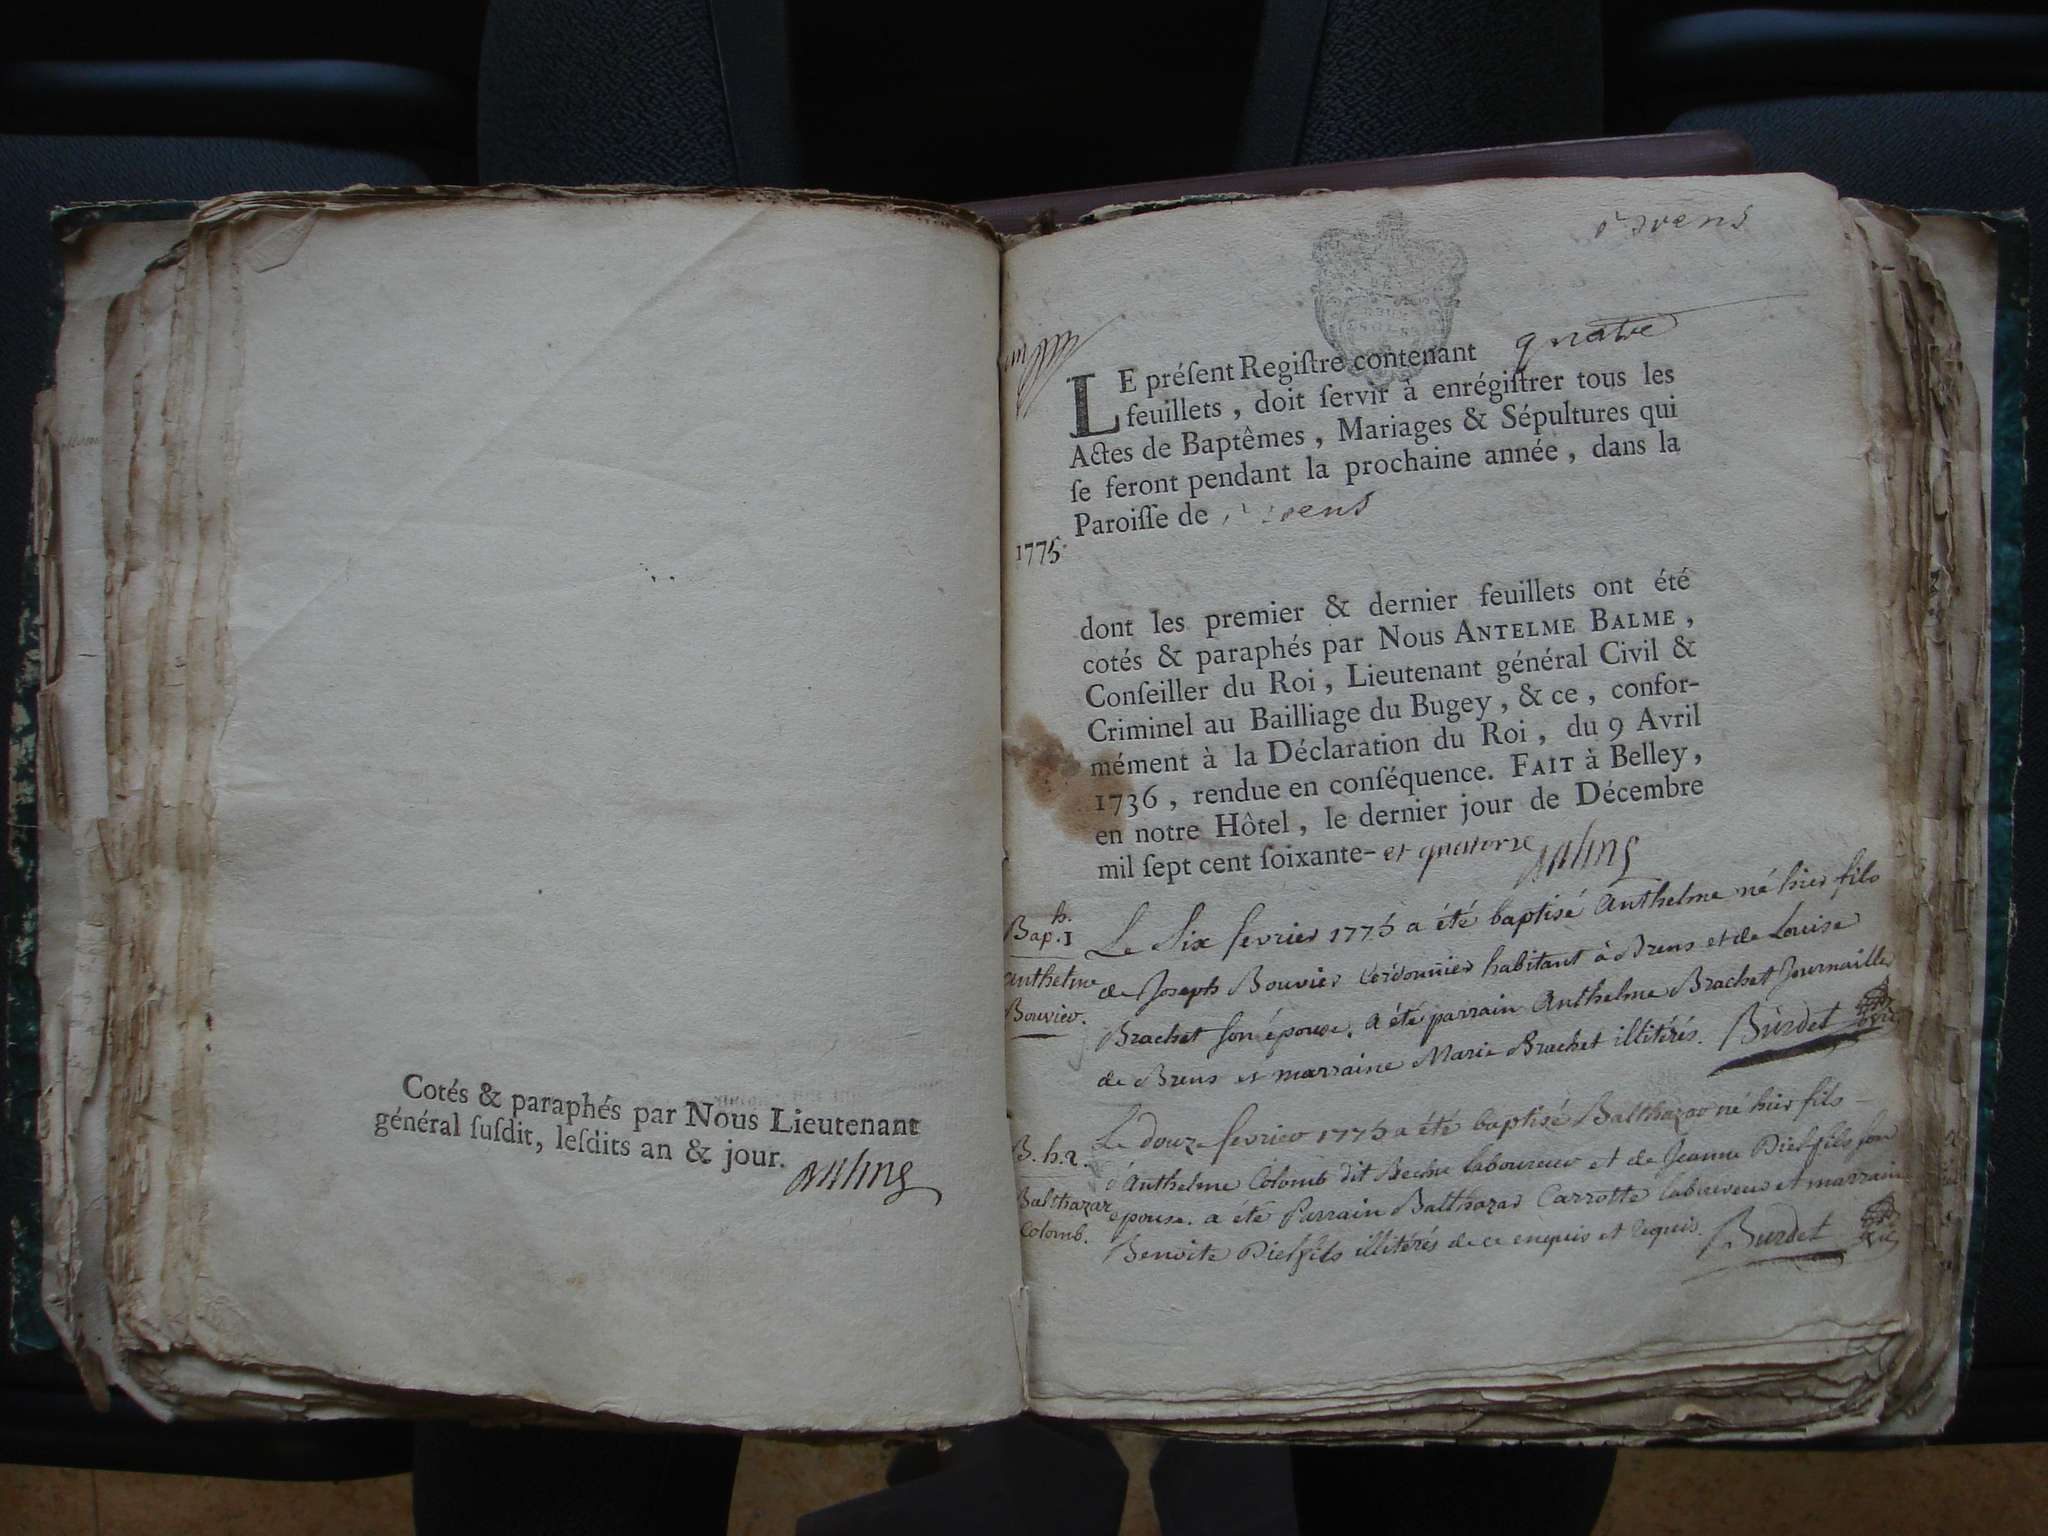 Cotés & paraphés par Nous Lieutenant
général ſuſdit, leſdits an & jour.
Brens
DEUX
SOLS
LE préſent Regiſtre contenant quatre
feuillets, doit ſervir à enrégiſtrer tous les
Actes de Baptêmes, Mariages & Sépultures qui
ſe feront pendant la prochaine année, dans la
Paroiſſe de Brens
1775.
dont les premier & dernier feuillets ont été
cotés & paraphés par Nous ANTELME BALME,
Conſeiller du Roi, Lieutenant général Civil &
Criminel au Bailliage du Bugey, & ce, confor-
mément à la Déclaration du Roi, du 9 Avril
1736, rendue en conſéquence. FAIT à Belley,
en notre Hôtel, le dernier jour de Décembre
mil ſept cent ſoixante- et quatorze
h.
Bap. 1
anthelme
Bouvier.
Le Six fevrier 1775 a été baptisé Anthelme né hier fils
de Joseph Bouvier Cordonnier habitant à Brens et de Louise
Brachet son épouse. a été parrain Anthelme Brachet Journailler
de Brens et marraine Marie Brachet illitérés. Burdet
B. h. 2.
Balthazar
Colomb.
Le douze fevrier 1775 a été baptisé Balthazar né hier fils
d'Anthelme Colomb dit laboureur et de Jeanne Dielfils son
épouse. a été Parrain Balthazar Carrotte laboureur et marraine
Benoite Dielfils illitérés de ce enquis et requis. Burdet